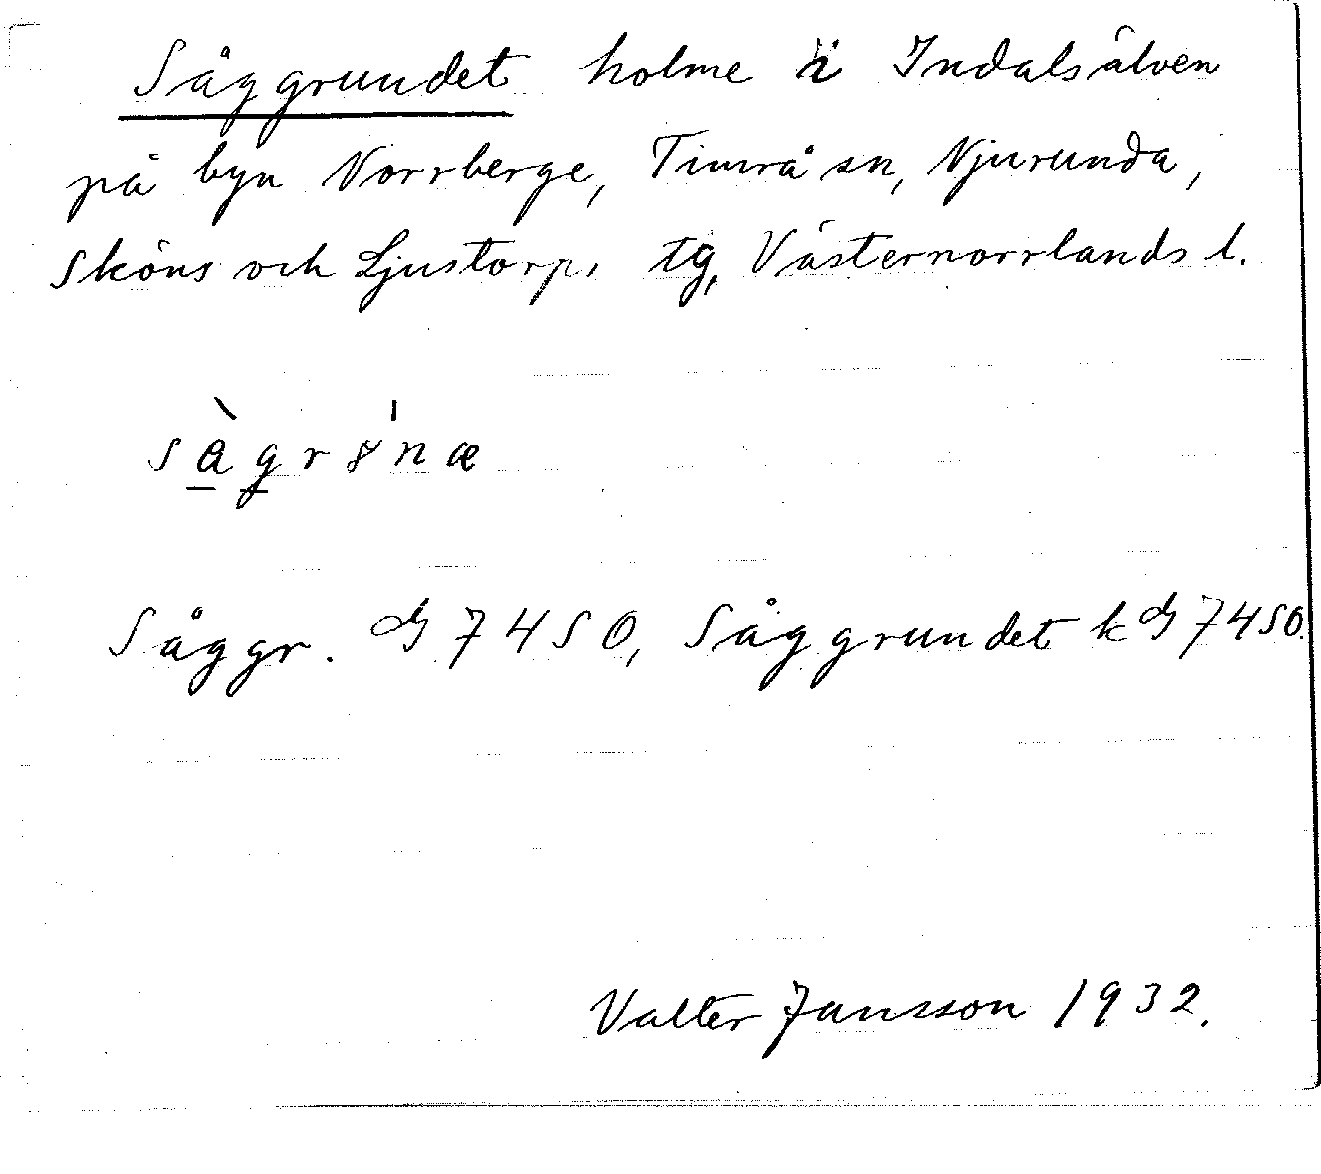 Såggrundet holme i Indalsälven
på byn Norrberge, Timrå sn, Njurunda,
Sköns och Ljustorps tg, Västernorrlands l.
Såggr. 7450, Såggrundet k 7450.
Valter Jansson 1932.